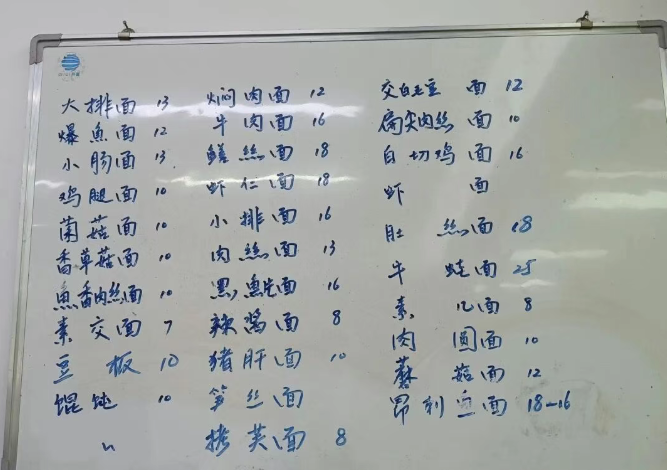 大排面 13
爆魚面 12
小肠面 13
鸡腿面 10
菌菇面 10
香草菇面 10
魚香肉丝面 10
素交面 7
豆板 10
馄饨 10
〃
焖肉面 12
牛肉面 16
鳝絲面 18
虾仁面 18
小排面 16
肉絲面 13
黑魚片面 16
辣酱面 8
猪肝面 10
笋丝面
烤芙面 8
交白毛豆面 12
扁尖肉丝面 10
白切鸡面 16
虾面
肚絲面 18
牛蛙面 25
素几面 8
肉圆面 10
蘑菇面 12
昂刺魚面 18-16